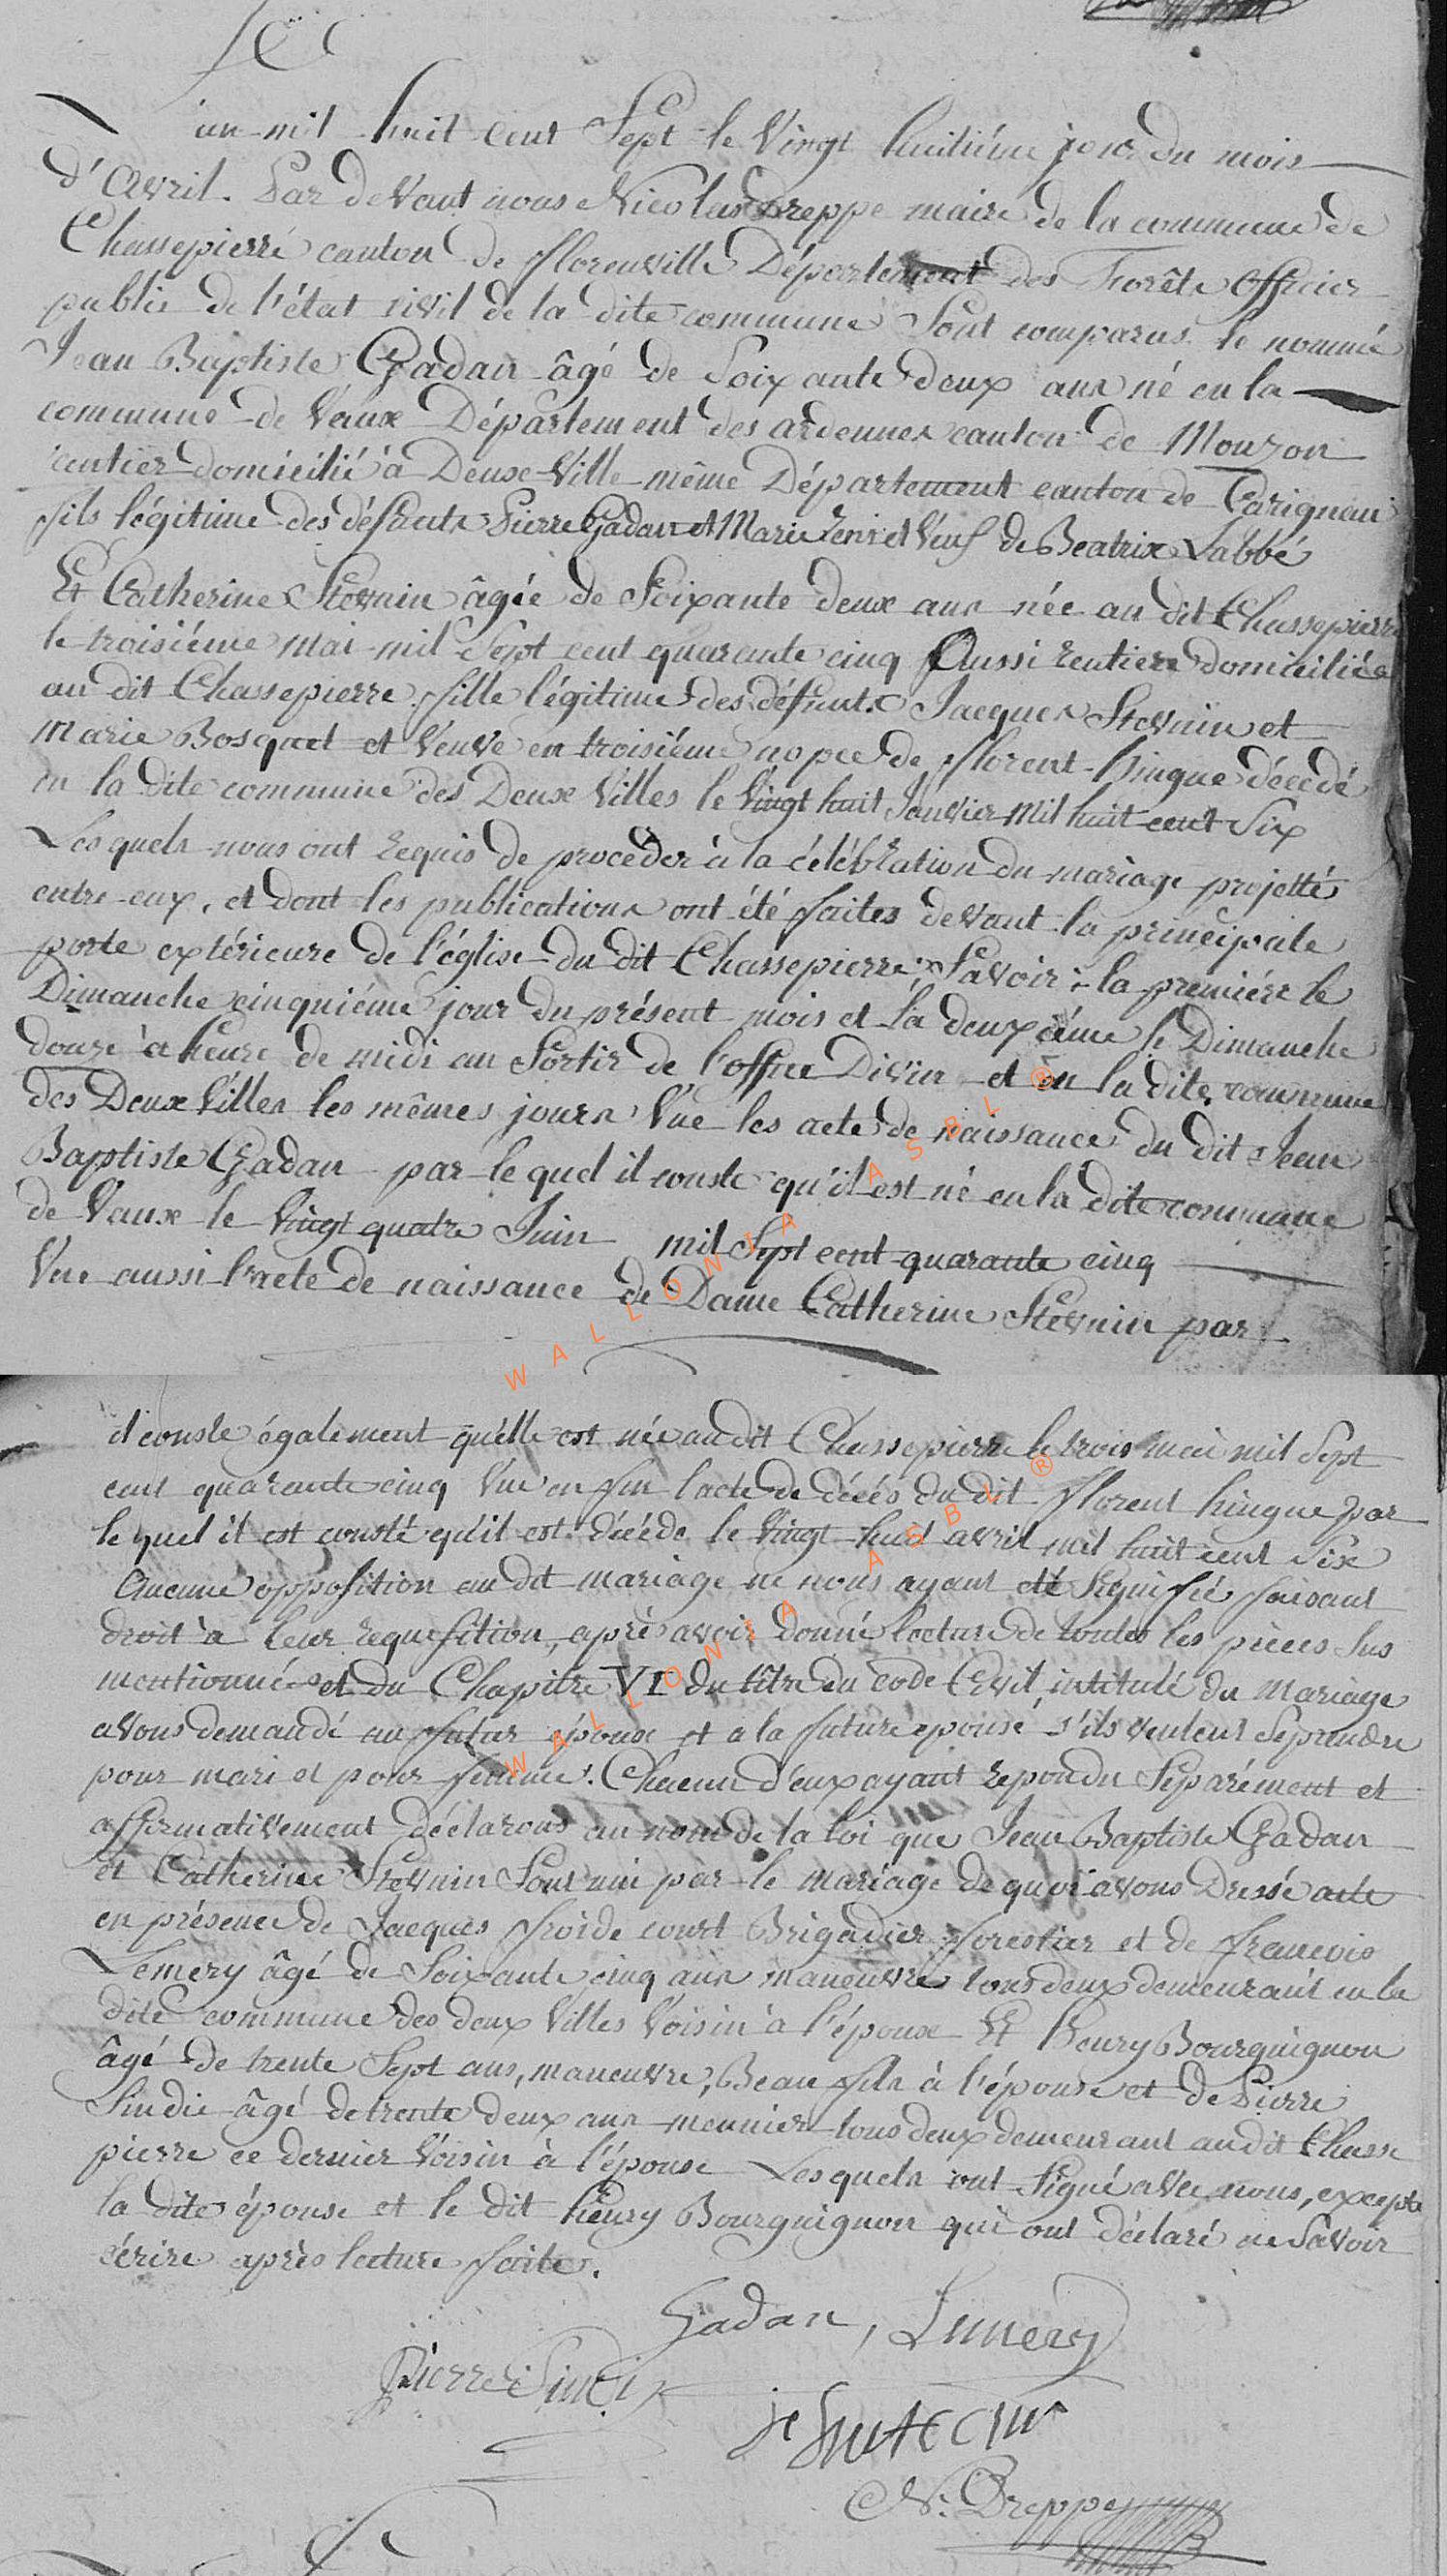 un mil huit cent Sept le Vingt huitiéme jour du mois
d'Avril. Par devant nous Nicolas Dreppe maire de la commune de
Chassepierre canton de florenville Département des Forêts officier
public de l'état civil de la dite commune Sont comparus le nommé
Jean Baptiste Gadan âgé de Soixante deux ans né en la
commune de Vaux Département des ardennes canton de Mouzon
rentier domicilié à Deux-Ville même Département canton de Carignan
fils légitime des défunts Pierre Gadan et Marie et Veuf de Beatrix Labbé
Et Catherine Stevnin âgée de Soixante deux ans née au dit Chassepierre
le troisiéme mai mil Sept cent quarante cinq Aussi rentiere domiciliée
au dit Chassepierre fille légitime des défunts Jacques Stevnin et
Marie Bosquet et Veuve en troisiéme nopce de florent hingue décedé
en la dite commune des Deux Villes le Vingt huit Janvier Mil huit cent Six
Les quels nous ont requis de proceder à la célébration du mariage projetté
entre eux, et dont les publications ont été faites devant la principale
porte extérieure de l'église du dit Chassepierre; Savoir: la premiére le
Dimanche cinquiéme jour du présent mois et la deuxiéme le Dimanche
douze à heure de midi au Sortir de l'office Divin et en la dite commune
des Deux Villes les mêmes jours Vue les acte de naissance du dit Jean
Baptiste Gadan par le quel il conste qu'il est né en la dite commune
de Vaux le Vingt quatre Juin mil Sept cent quarante cinq
Vue aussi l'acte de naissance de Dame Catherine Stevnin par
il conste également qu'elle est née au dit Chassepierre le trois mai mil Sept
cent quarante cinq Vue en fin l'acte de décés du dit florent hingue par
le quel il est consté qu'il est décédé le Vingt huit avril mil huit cent Six
Aucune opposition au dit mariage ne nous ayant été Signifié faisant
droit à leur requisition, aprés avoir donné lecture de toutes les pièces Sus
mentionnées et du Chapitre VI du titre du code Civil, intitulé du Mariage
avons demandé au futur époux et a la future epouse s'ils veulent Se prendre
pour mari et pour femme. Chacun d'eux ayant repondu Separément et
affirmativement déclarons au nom de la loi que Jean Baptiste Gadan
et Catherine Stevnin Sont uni par le mariage de quoi avons Dressé acte
en présence de Jacques froide court Brigadier forestier et de francois
Lemery âgé de Soixante cinq ans maneuvre tous deux demeurant en la
dite commune des deux Villes Voisin à l'époux Et Henry Bourguignon
âgé de trente Sept ans, maneuvre, Beau fils à l'épouse et de Pierre
Sindic âgé de trente deux ans meunier tous deux demeurant au dit Chasse
pierre ce dernier Voisin à l'épouse Lesquels ont Signé avec nous, excepté
la dite épouse et le dit henry Bourguignon qui ont déclaré ne Savoir
écrire après lecture faite.
Gadan, Lemery
Pierre Sindic
N. Dreppe
WALLONIA ASBL ®
WALLONIA ASBL ®